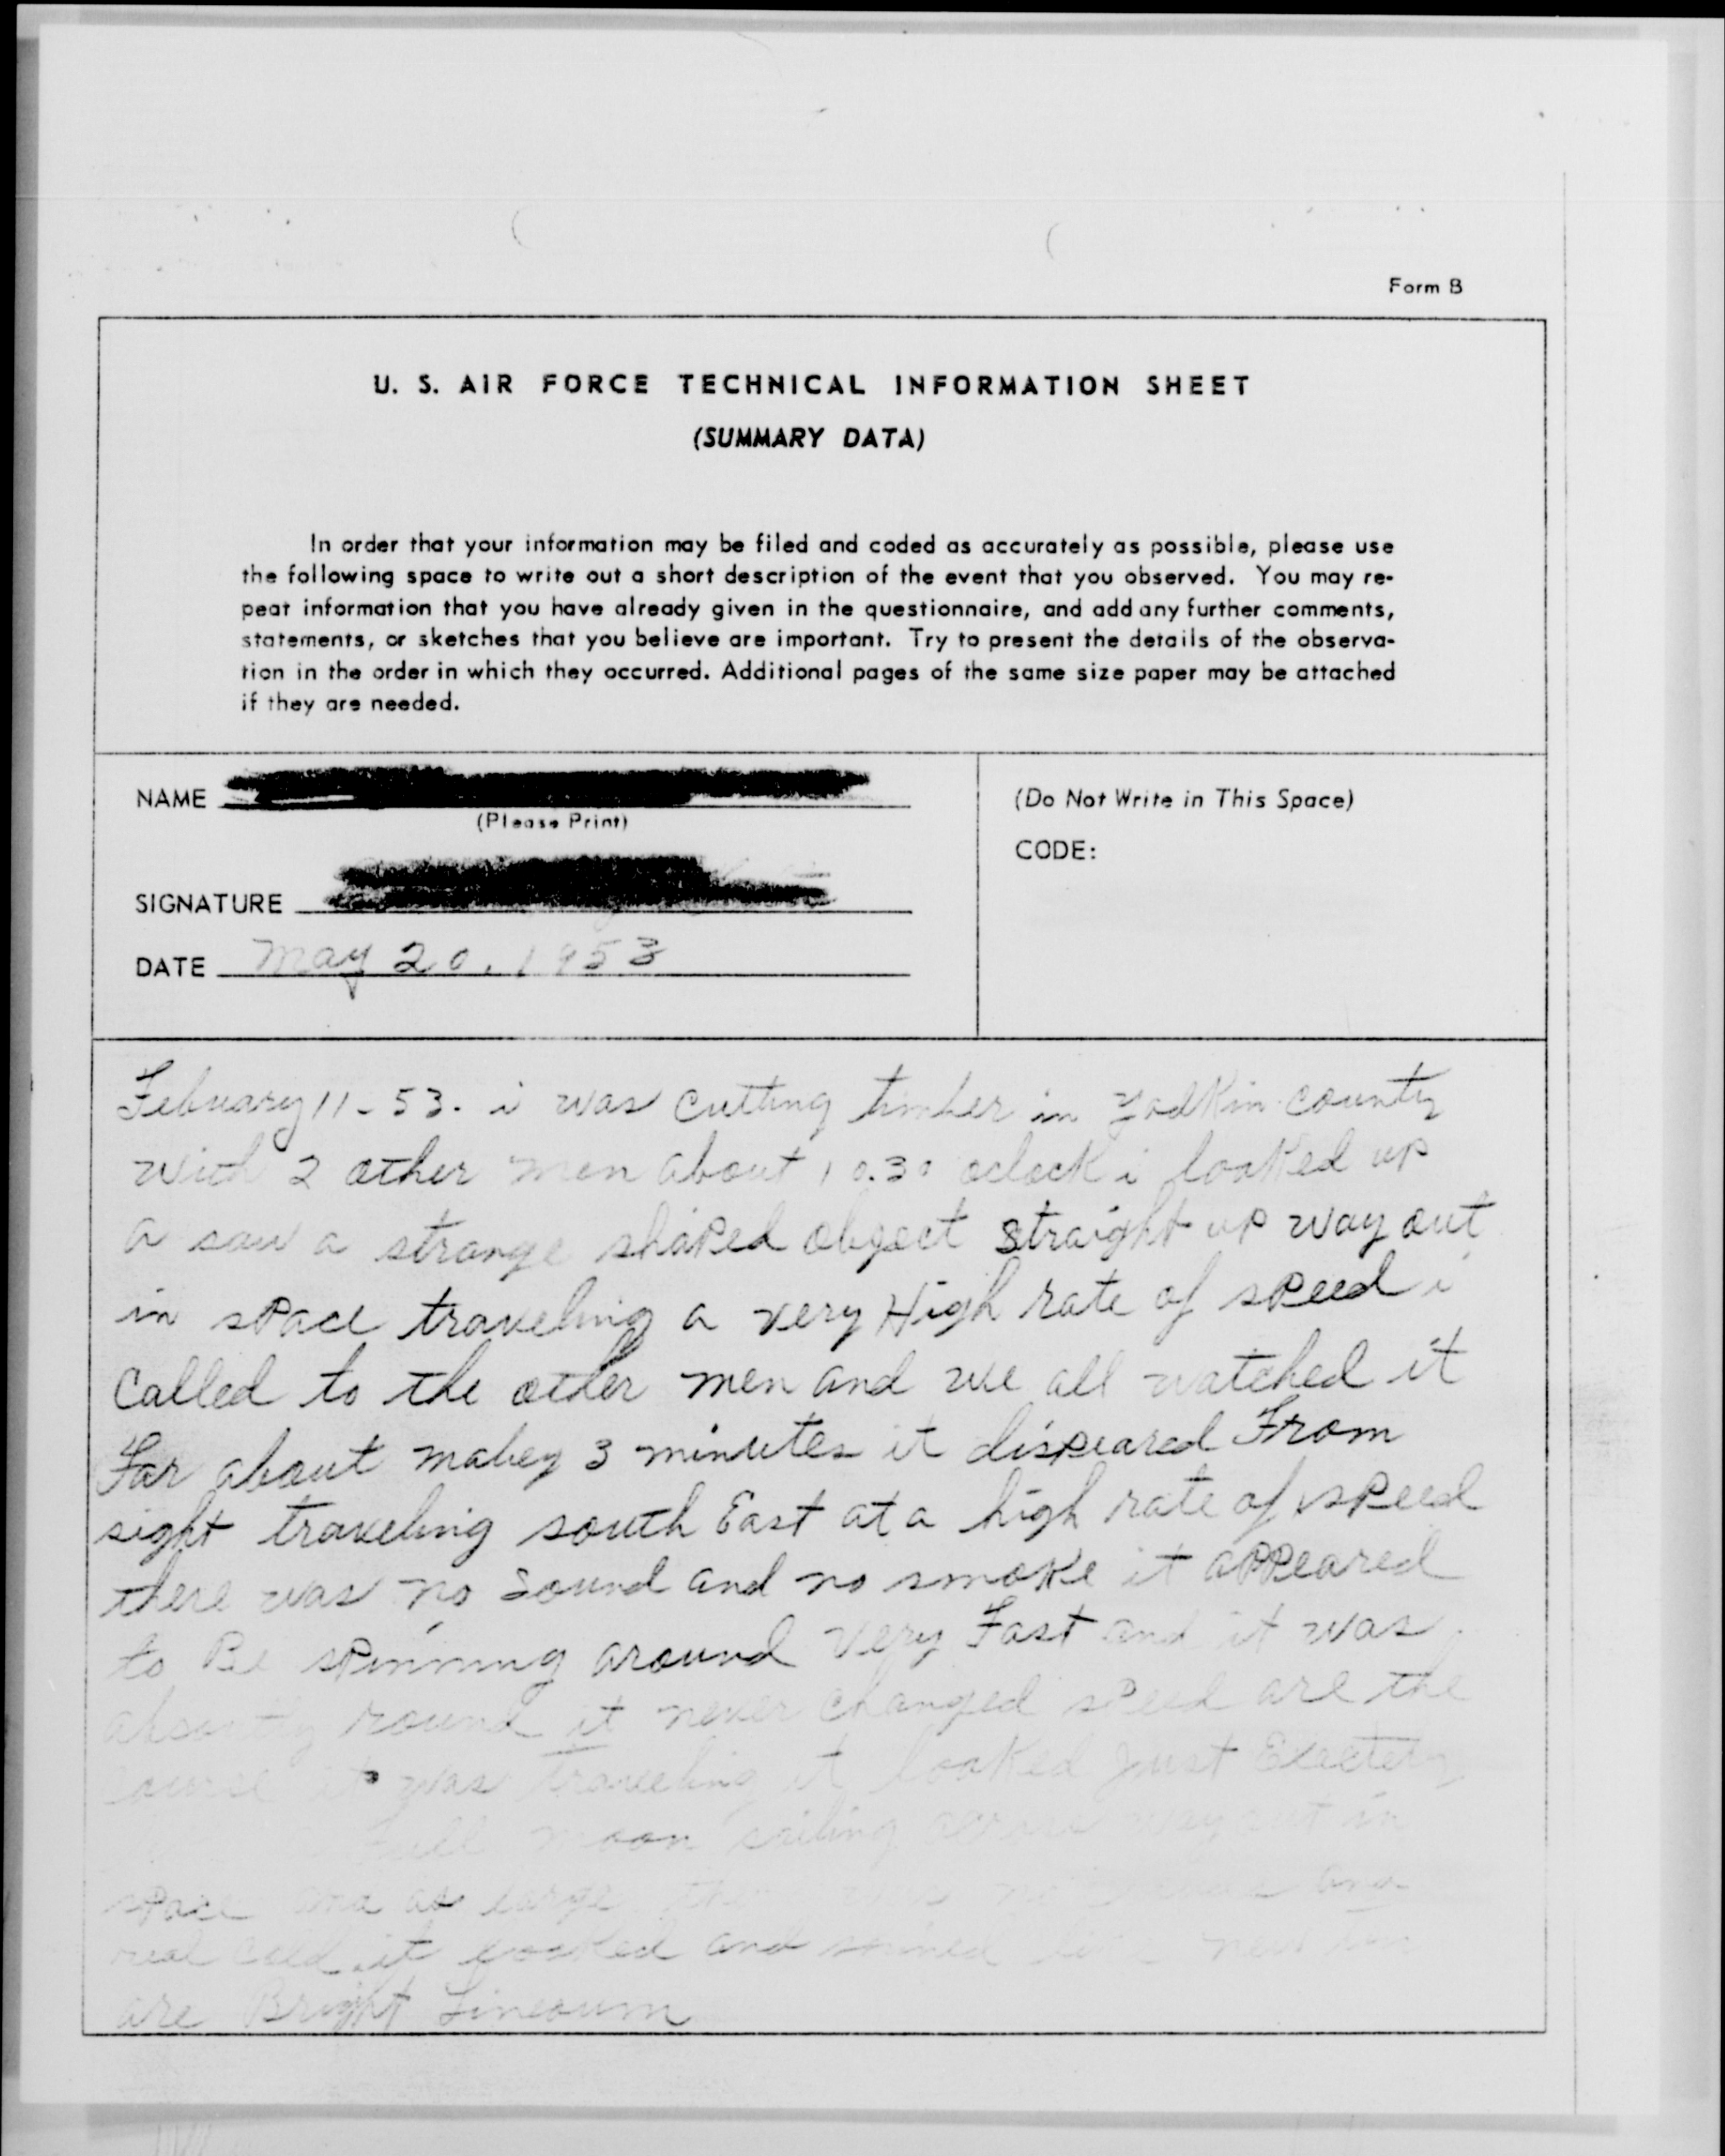 Form B
U. S. AIR FORCE TECHNICAL INFORMATION SHEET
(SUMMARY DATA)
In order that your information may be filed and coded as accurately as possible, please use
the following space to write out a short description of the event that you observed. You may re-
peat information that you have already given in the questionnaire, and add any further comments,
statements, or sketches that you believe are important. Try to present the details of the observa-
tion in the order in which they occurred. Additional pages of the same size paper may be attached
if they are needed.
NAME
(Please Print)
SIGNATURE
DATE May 20, 1953
(Do Not Write in This Space)
CODE:
Febuary 11-53. i was cutting timber in yadkin county
with 2 other men about 10.30 oclock i looked up
a saw a strange shaped object straight up way out
in space traveling a very High rate of speed i
called to the other men and we all watched it
For about mabey 3 minutes it dispeared From
sight traveling south East at a high rate of speed
there was no sound and no smoke it appeared
to Be spinning around very Fast and it was
round it never changed speed are the
course it was traveling it looked just
full moon sailing across way out in
space and as large and
real cold it looked and shined like new
are Bright